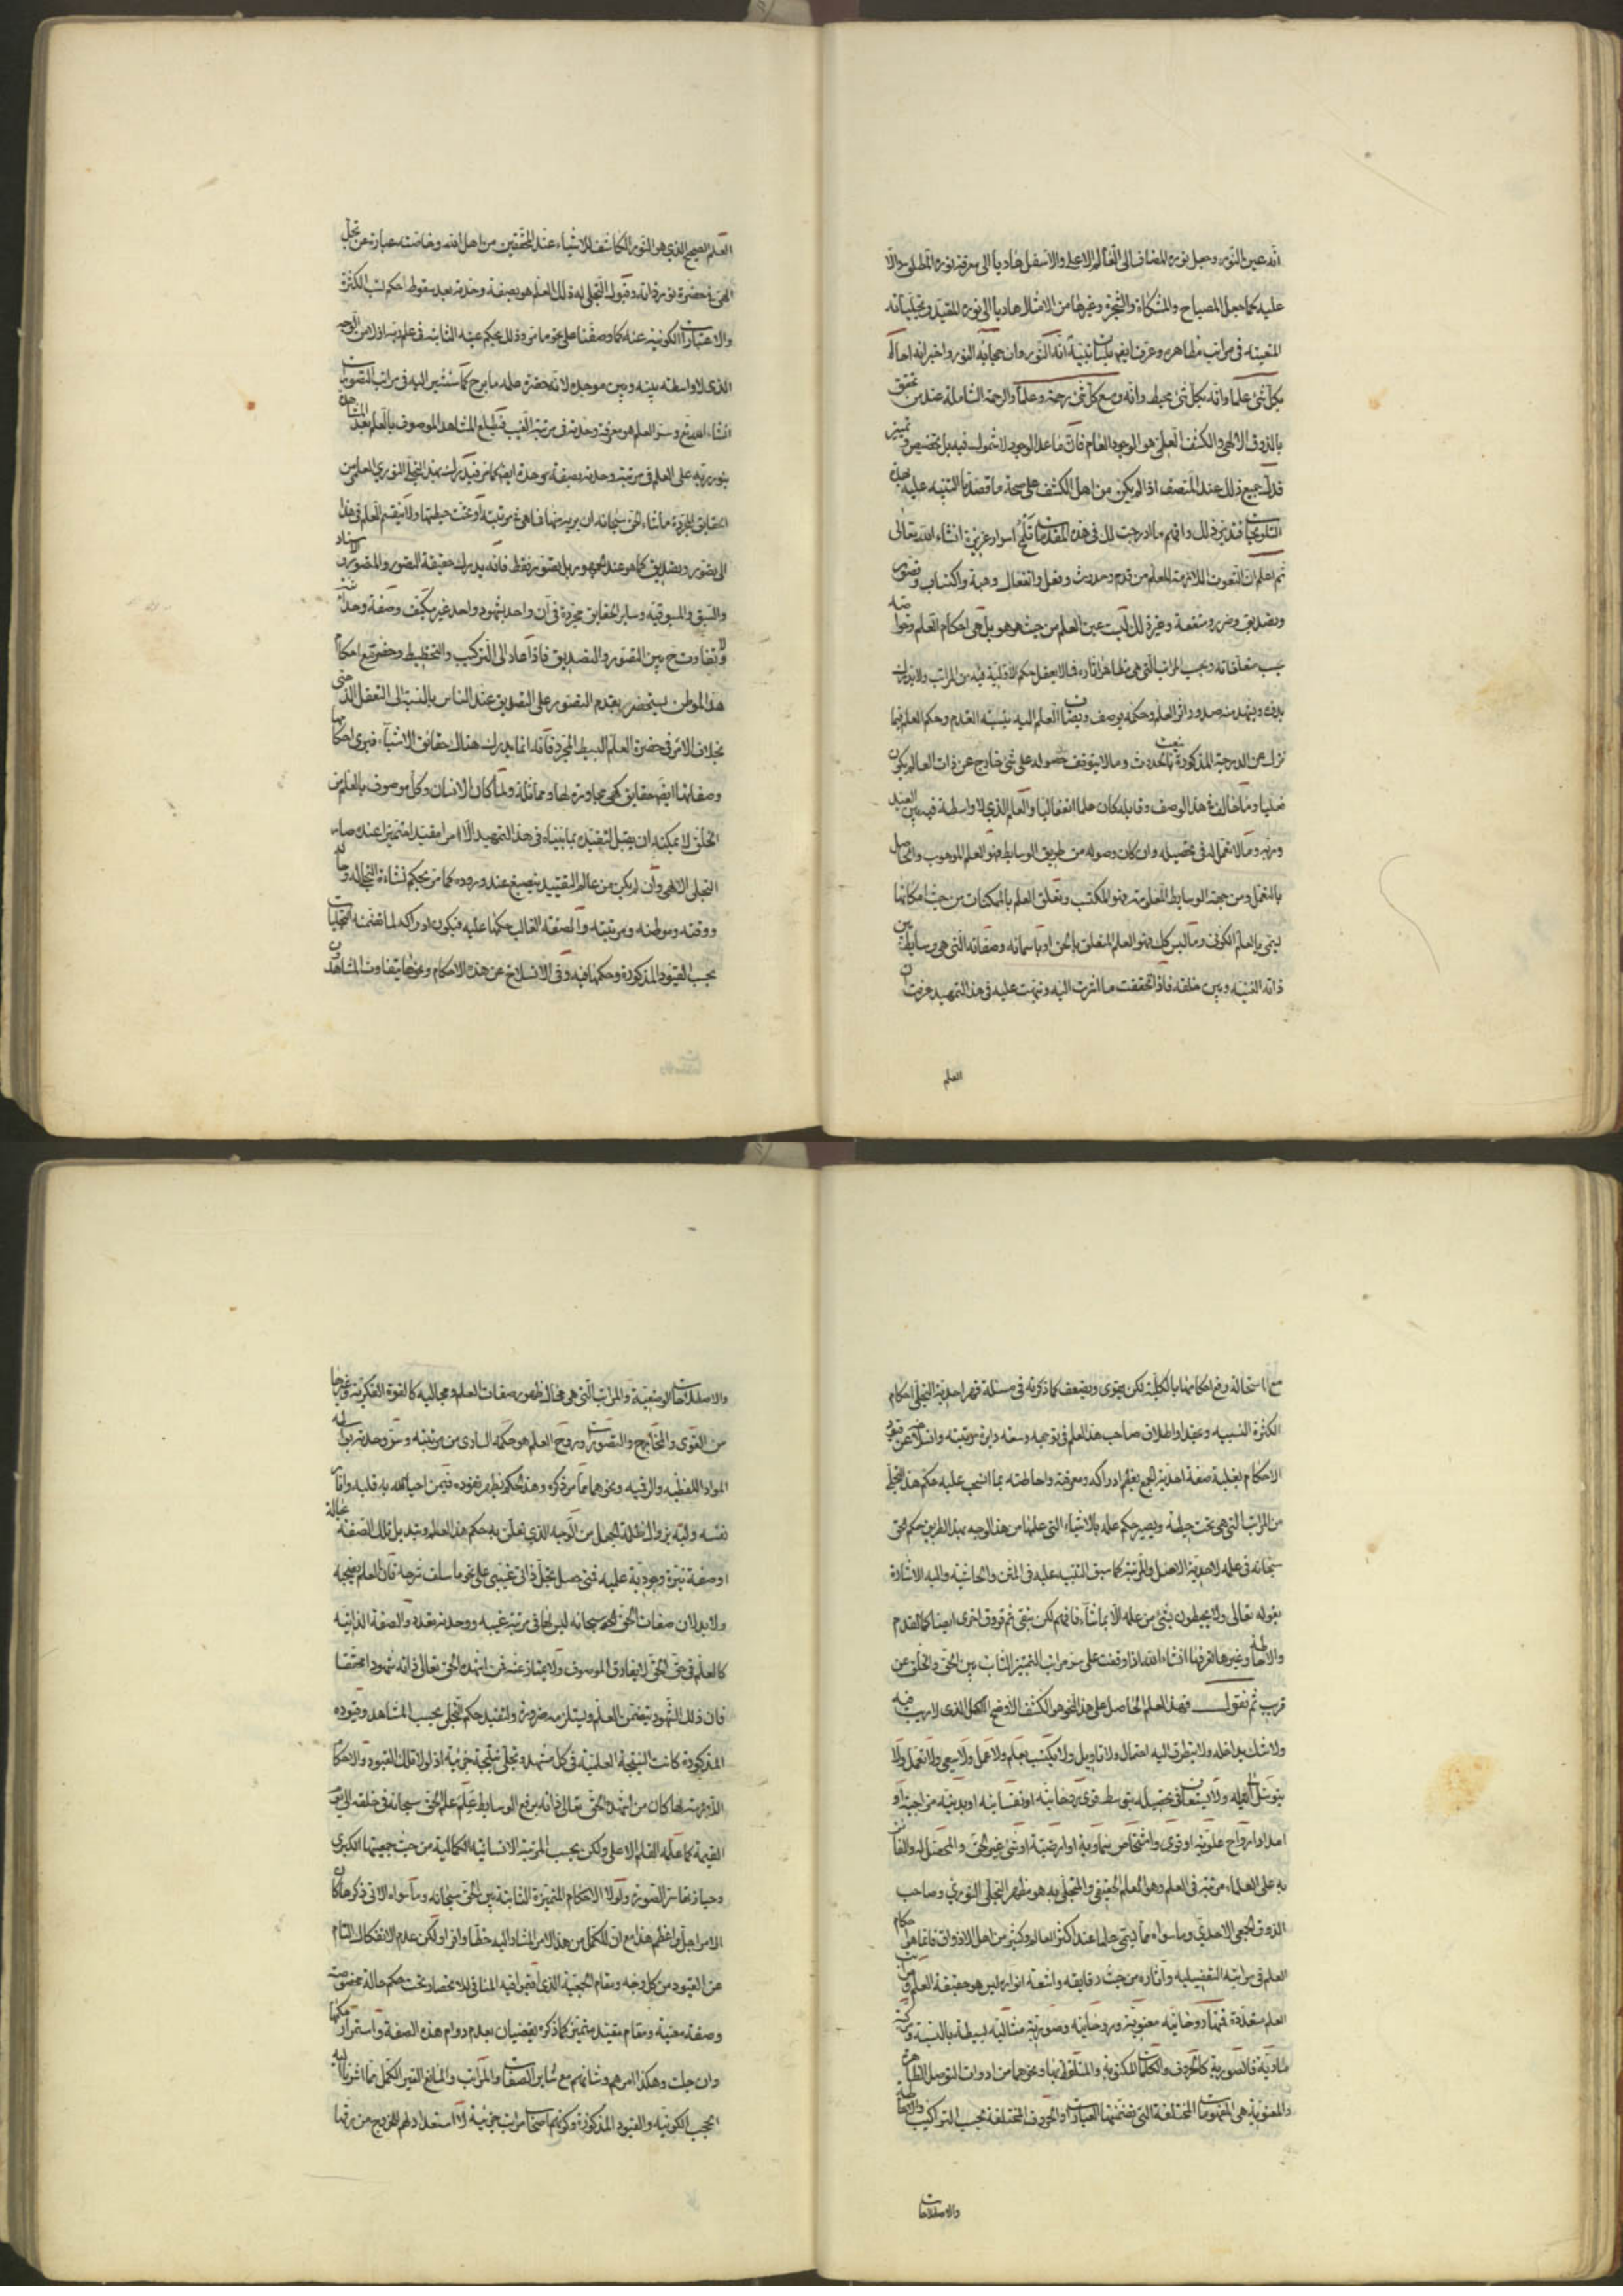 انه عين النور وجعل نوره المضاف الى العالم الاعلى والاسفل هاديا الى معرفة نوره المطلق ودالا
عليه كما جعل المصباح والمشكاة والشجرة وغيرها من الامثال هاديا الى نوره المقيد وتجلياته
المتعينة في مراتب مظاهره وعرفنا ايضا بلسان نبيه انه النور وان حجابه النور واخبر انه احاط
بكل شئ علما وانه بكل شئ محيط وانه وسع كل شئ رحمة وعلما والرحمة الشاملة عند من تحقق
بالذوق الالهي والكشف العلمي هو الوجود العام فان ما عدا الوجود لا شمول فيه بل تخصيص وتمييز
فدل جميع ذلك عند المنصف اذا لم يكن من اهل الكشف على صحة ما قصدنا التنبيه عليه بهذه
التلويحات فتدبر ذلك وافهم ما ادرجت لك في هذه المقدمات تلح اسرار عزيزة انشاء الله تعالى
ثم اعلم ان النعوت اللازمة للعلم من قدم وحدوث وفعل وانفعال وهبة واكتساب وتصور
وتصديق وضرر ومنفعة وغير ذلك ليست عين العلم من حيث هو هو بل هي احكام العلم وخواصه
بحسب متعلقاته وبحسب المراتب التي هي مظاهر اثاره فما لا يعقل حكم الاولية فيه من المراتب ولا يدرك
بدؤه ويشهد منه صدور اثر العلم وحكمه يوصف ويضاف العلم اليه بنسبة القدم وحكم العلم فيما
نزل عن الدرجة المذكورة ينعت بالحدوث وما لا يتوقف حصوله على شئ خارج عن ذات العالم يكون
فعليا وما خالف هذا الوصف وقابله كان علما انفعاليا والعلم الذي لا واسطة فيه بين العبد
وربه وما لا تعمل له في تحصيله وان كان وصوله من طريق الوسايط فهو العلم الموهوب والحاصل
بالتعمل ومن جهة الوسايط المعلومة فهو المكتسب وتعلق العلم بالممكنات من حيث امكانها
يسمى بالعلم الكوني وما ليس كذلك فهو العلم المتعلق بالحق او باسمائه وصفاته التي هي وسايط بين
ذاته الغنية وبين خلقه فاذا تحققت ما اشرت اليه ونبهت عليه في هذا التمهيد عرفت ان
العلم
العلم الصحيح الذي هو النور الكاشف للاشياء عند المحققين من اهل الله وخاصته عبارة عن تجل
الهي في حضرة نور ذاته وقبول المتجلى له ذلك العلم هو بصفة وحدته بعد سقوط احكم نسب الكثرة
والاعتبارات الكونية عنه كما وصفنا على نحو ما مر وذلك بحكم عينه الثابتة في علم ربه ازلا من الوجه
الذي لا واسطة بينه وبين موجده لانه في حضرة علمه ما برح كما سنشير اليه في مراتب التصورات
انشاء الله تع وسر العلم هو معرفة وحدته في مرتبة الغيب فيطلع المشاهد الموصوف بالعلم بعد المشاهدة
بنور ربه على العلم في مرتبة وحدته بصفة وحدة ايضا كما مر فيدرك بهذا التجلي النوري العلمي من
الحقايق المجردة ما شاء الحق سبحانه ان يريه منها مما هي في مرتبته او تحت حيطتها ولا ينقسم العلم في هذا
الى تصور وتصديق كما هو عند الجمهور بل تصور فقط فانه يدرك حقيقة التصور والمتصور والاسناد
والسبق والمسبوقية وساير الحقايق مجردة في آن واحد بشهود واحد غير مكيف وصفة وحدانية
ولا تفاوت ح بين التصور والتصديق فاذا عاد الى التركيب والتخطيط وحضر مع احكام
هذا الموطن يستحضر بقدم التصور على التصديق عند الناس بالنسبة الى التعقل الذهني
بخلاف الامر في حضرة العلم البسيط المجرد فانه انما يدرك هنالك حقائق الاشياء فيرى احكامها
وصفاتها ايضا حقايق كهي مجاورة لها ومماثلة ولما كان الانسان وكل موصوف بالعلم من
الخلق لا يمكنه ان يقبل لتقيده بما بيناه في هذا التمهيد الا امرا مقيدا متميزا عنده صار
التجلي الالهي وان لم يكن من عالم التقييد ينصبغ عند وروده كما مر بحكم نشاءة المتجلى له وحاله
ووقته وموطنه ومرتبته والصفة الغالب حكمها عليه فيكون ادراكه لما تضمنه التجليات
بحسب القيود المذكورة وحكمها فيه وفي الانسلاخ عن هذه الاحكام ونحوها يتفاوت المشاهدون
مع استحالة رفع احكامها بالكلية لكن يقوى ويضعف كما ذكرته في مسئلة قهر احدية التجلي احكام
الكثرة النسبية وعند اطلاق صاحب هذا العلم في توجهه وسعة دايرة مرتبته وانسلاخه عن قيود
الاحكام بغلبة صفة احدية الجمع يعظم ادراكه ومعرفته واحاطته بما انسحب عليه حكم هذا التجلي
من المراتب التي هي تحت حيطته ويصير حكم علمه بالاشياء التي علمها من هذا الوجه بهذا الطريق حكم الحق
سبحانه في علمه لاحدية الاصل والمرتبة كما سبق التنبيه عليه في المتن والحاشية واليه الاشارة
بقوله تعالى ولا يحيطون بشئ من علمه الا بما شاء فافهم لكن تبقى ثم فروق اخرى ايضا كالقدم
والاحاطة وغيرهما تعرفها انشاء الله اذا وقفت على سر مراتب التمييز الثابت بين الحق والخلق عن
قريب ثم نقول فهذا العلم الحاصل على هذا النحو هو الكشف الاوضح الاكمل الذي لا ريب فيه
ولا شك يداخله ولا يتطرق اليه احتمال ولا تاويل ولا يكتسب بعلم ولا عمل ولا سعي ولا تعمل ولا
يتوسل الى نيله ولا يستعان في تحصيله بتوسط قوى روحانية او نفسانية او بدنية مزاجية او
امداد ارواح علوية او قوى واشخاص سماوية او ارضية او شئ غير الحق والمحصل له والفائز
به على العلماء مرتبة في العلم وهو العلم الحقيقي والمتجلى به هو مظهر التجلي النوري وصاحب
الذوق الجمعي الاحدي وما سواه مما يسمى علما عند اكثر العالم وكثير من اهل الاذواق فانما هو احكام
العلم في مراتبه التفصيلية واثاره من حيث دقايقه واشعة انواره ليس هو حقيقة العلم ومراتب
العلم متعددة فمنها روحانية معنوية وروحانية وصورية مثالية بسيطة بالنسبة ومركبة
مادية فالصورية كالحروف والكلمات المكتوبة والمتلفظ بها ونحوهما من ادوات التوصل الظاهرة
والمعنوية هي المفهومات المختلفة التي تضمنتها العبارات والحروف المختلفة بحسب التراكيب والاصطلاحات
والاصطلاحات
والاصطلاحات الوضعية والمراتب التي هي محال ظهور صفات العلم ومجاليه كالقوة الفكرية وغيرها
من القوى والمخارج والتصورات وروح العلم هو حكمه السارى من مرتبته وسر وحدته بواسطة
المواد اللفظية والرقمية ونحوهما مما مر ذكره وهذا الحكم يظهر نفوذه فيمن احيا الله به قلبه وانار
نفسه ولبه بزوال ظلمة الجهل من الوجه الذي تعلق به حكم هذا العلم وتبديل تلك الصفة بحالة
او صفة نيرة وجودية علمية فمتى حصل تجل ذاتي غيبي على نحو ما سلف شرحه فان العلم يصحبه
ولا بد لان صفات الحق سبحانه ليس لها في مرتبة غيبه ووحدته تعدد والصفة الذاتية
كالعلم في حق الحق لا يفارق الموصوف ولا يمتاز عنه فمن اشهده الحق تعالى ذاته شهودا محققا
فان ذلك الشهود يتضمن العلم ويستلزمه ضرورة ولتقيد حكم التجلي بحسب المشاهد وقيوده
المذكورة كانت النتيجة العلمية في كل مشهد وتجل نتيجة جزئية اذ لولا تلك القيود والاحكام
اللازمة لها كان من اشهده الحق تعالى ذاته برفع الوسايط علم علم الحق سبحانه في خلقه الى يوم
القيمة كما علمه القلم الاعلى ولكن بحسب المرتبة الانسانية الكمالية من حيث جمعيتها الكبرى
وحيازتها سر الصورة ولولا الاحكام المتميزة الثابتة بين الحق سبحانه وما سواه الاتي ذكرها كان
الامر اجل واعظم هذا مع ان للكمل من هذا الامر المشار اليه حظا وافرا ولكن عدم الانفكاك التام
عن القيود من كل وجه ومقام الجمعية الذي اقيموا فيه المنافى للانحصار تحت حكم حالة مخصوصة
وصفة معينة ومقام مقيد متميز كما ذكره يقضيان بعدم دوام هذه الصفة واستمرار حكمها
وان جلت وهكذا امرهم وشانهم مع ساير الصفات والمراتب والمانع لغير الكمل مما اشرنا اليه
الحجب الكونية والقيود المذكورة وكونهم اصحاب مراتب جزئية لا استعداد لهم للخروج من رقها